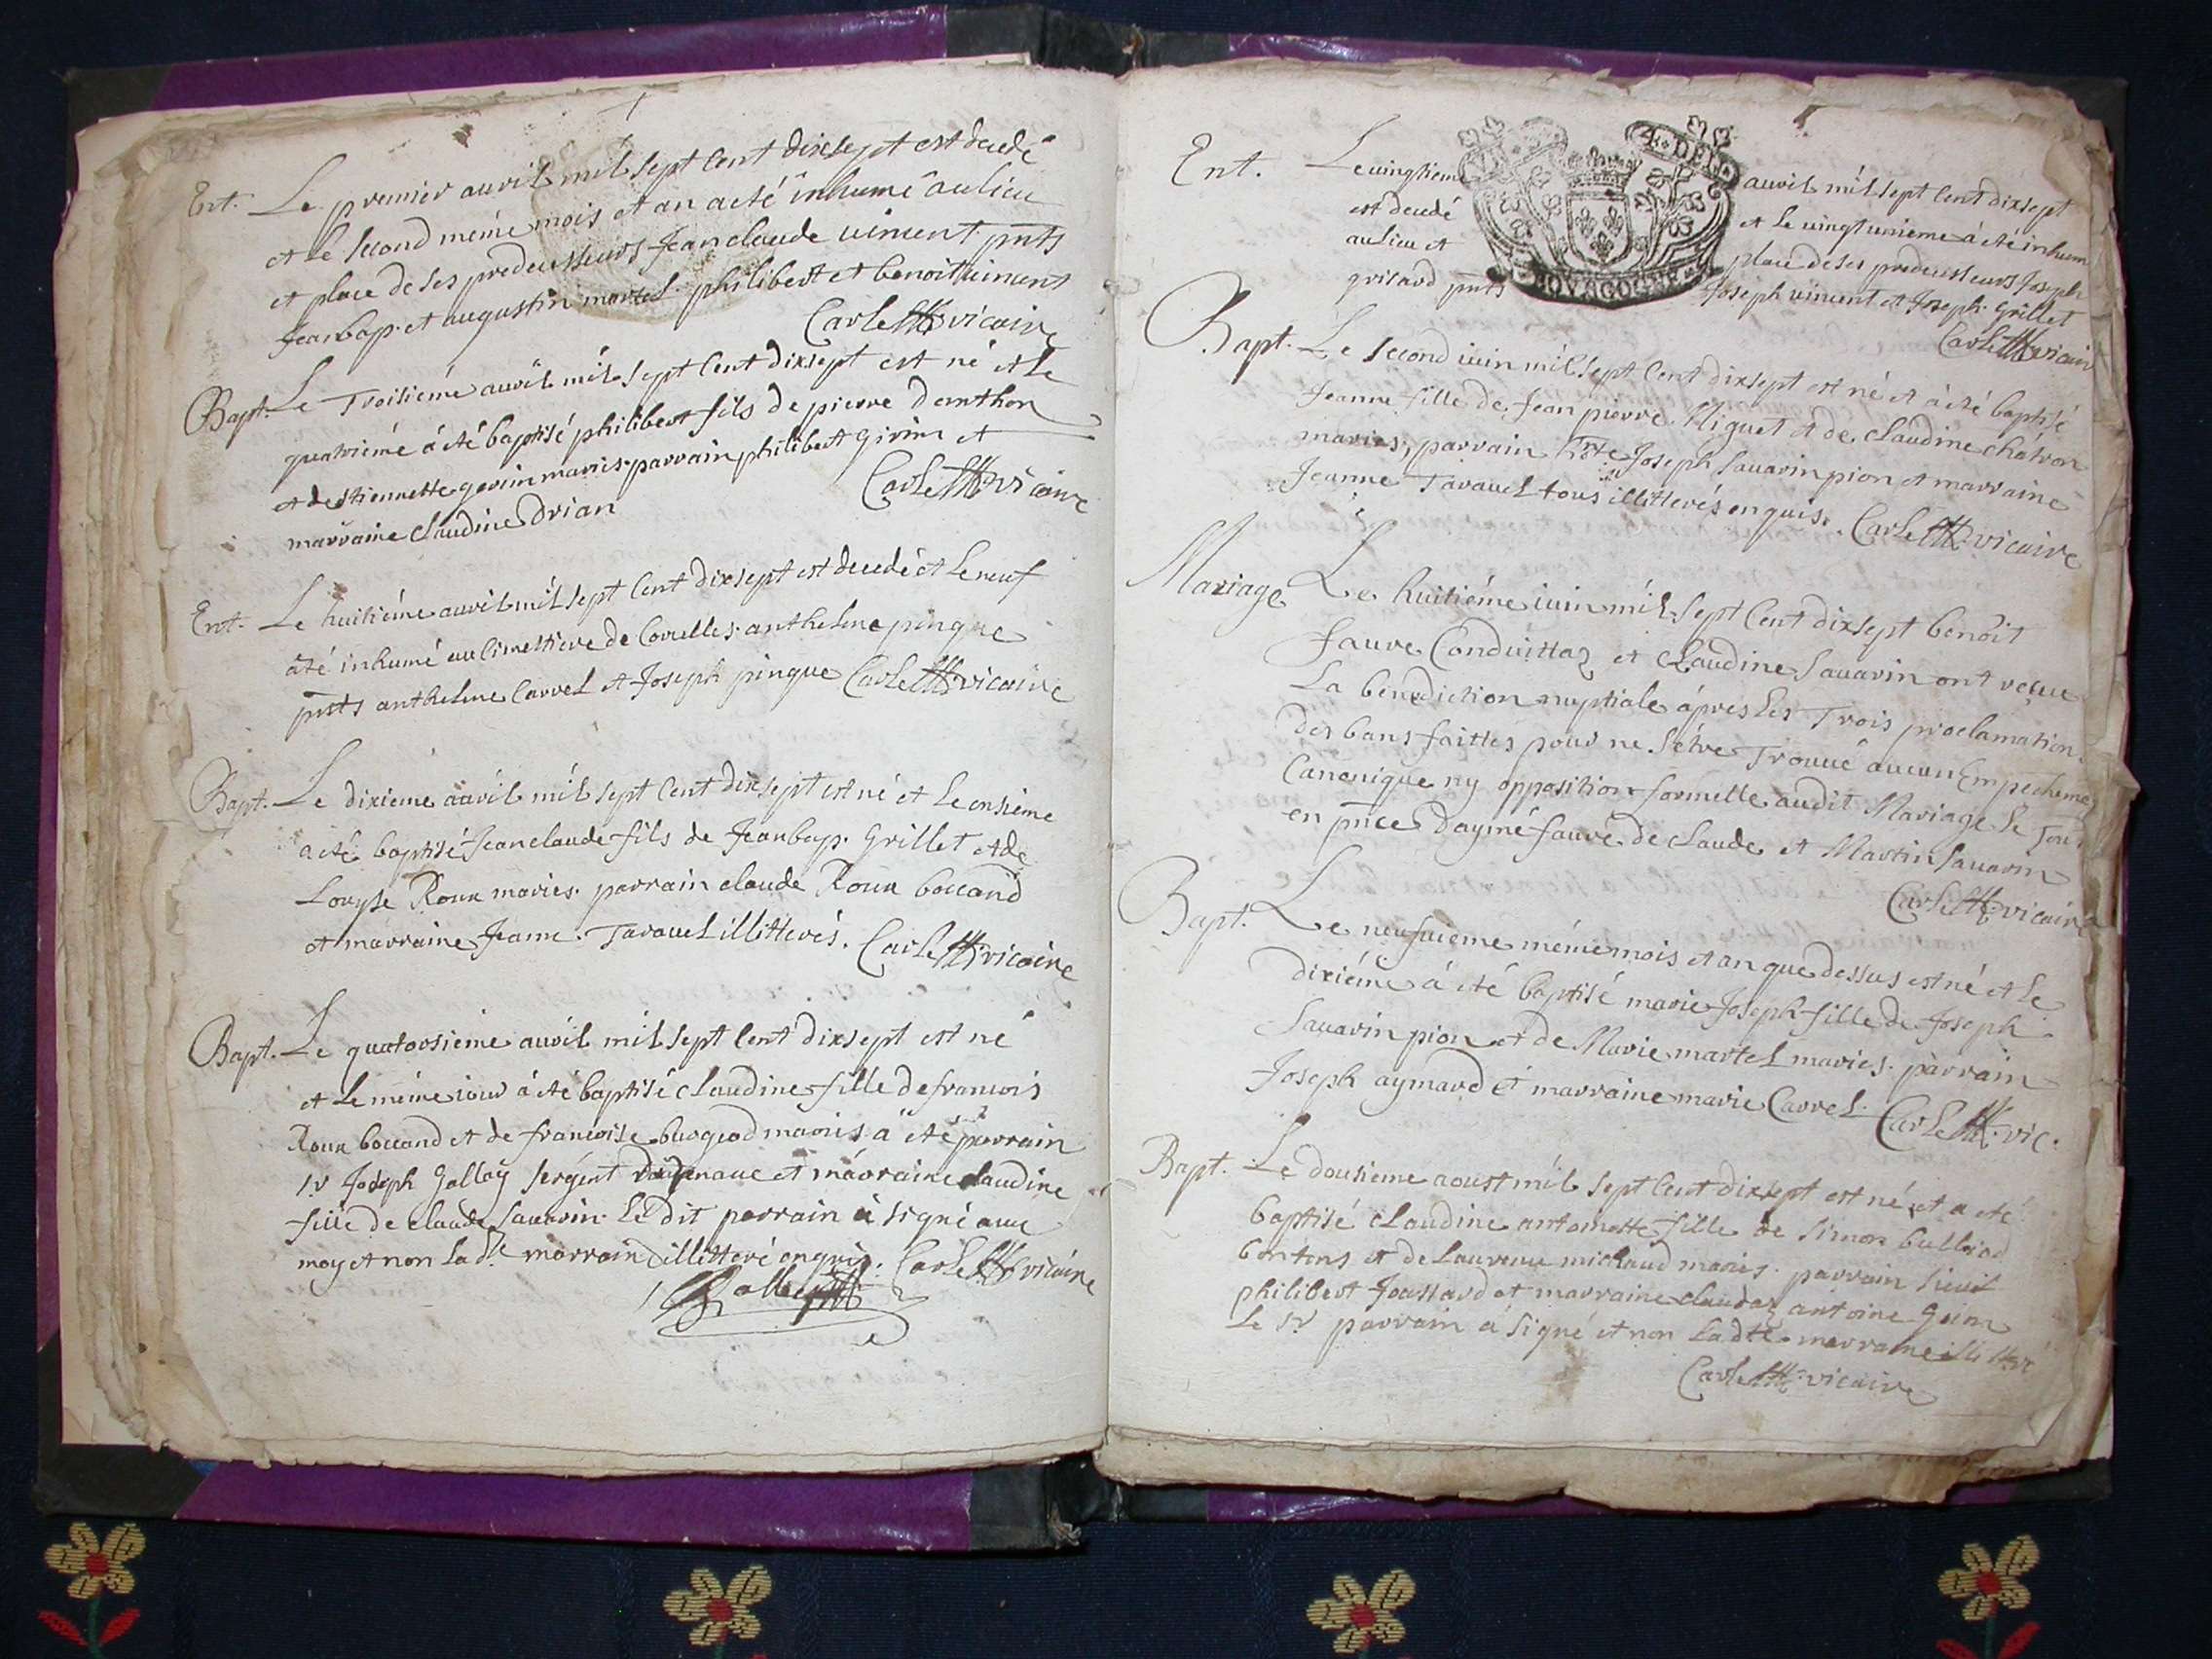 Ent. Le premier auvil mil sept cent dixsept est decedé
et le second méme mois et an a eté inhumé au lieu
et place de ses predecesseurs Jean claude vincent pnts
Jean bap. et augustin martel philibert et benoit vincent
Carle vicaire
Bapt. Le Troisiéme auvil mil sept cent dixsept est né et le
quatriéme à eté baptisé philibert fils de pierre danthon
et destiennette gerin mariés parrain philibert girin et
marraine claudine Drian Carle vicaire
Ent. Le huitiéme auvil mil sept cent dixsept est decedé et le neuf
àté inhumé au cimettiere de Corcelles anthelme pingue
pnts anthelme Carrel et Joseph pingue Carle vicaire
Bapt. Le dixieme auvil mil sept cent dixsept est né et le onsiéme
a eté baptisé Jean claude fils de Jean bap. Grillet et de
Louyse Roux mariés. parrain claude Roux boccand
et marraine Jeanne Tarauel illitterés. Carle vicaire
Bapt. Le quatorsiéme auvil mil sept cent dixsept est né
et le méme iour à eté baptisé claudine fille de francois
Roux boccand et de francoise burgeod mariés a eté parrain
sr Joseph Gallay sergent et marraine claudine
fille de claude sauarin. Le dit parrain à signé auec
moy et non lad.te marraine illitteré enquis. Carle vicaire
Ent. Le uingtieme auvil mil sept cent dixsept
est decedé et le uingt unieme à eté inhum
au lieu et place de ses predecesseurs Joseph
grisard pnts Joseph vincent et Joseph Grillet
Carle vicair
Bapt. Le second iuin mil sept cent dixsept est né et à eté baptisé
Jeanne fille de Jean pierre Niguet et de claudine châtron
mariés, parrain Joseph sauarin pion et marraine
Jeanne Tarauel tous illitterés enquis. Carle vicaire
Mariage Le huitiéme iuin mil sept cent dixsept benoit
fauvre Conduittaz et claudine sauarin ont reçue
La benediction nuptiale áprés les Trois proclamation
des bans faittes pour ne s'étre Trouué aucun Empecheme
Canonique ny opposition formelle audit Mariage le Tou
en pnce Daymé fauvre de claude et Martin sauarin
Carle vicaire
Bapt. Le neufuieme méme mois et an que dessus est né et le
dixiéme à eté baptisé marie Joseph fille de Joseph
sauarin pion et de Marie martel mariés. parrain
Joseph aymard et marraine marie Carrel. Carle vic.
Bapt. Le dousieme aoust mil sept cent dixsept est né et a eté
baptisé claudine antoinette fille de simon bulliod
bontens et de Laurence michaud mariés. parrain sieur
philibert Joussard et marraine claudaz antoine
Le sr parrain à signé et non ladte marraine illitteré
Carle vicaire